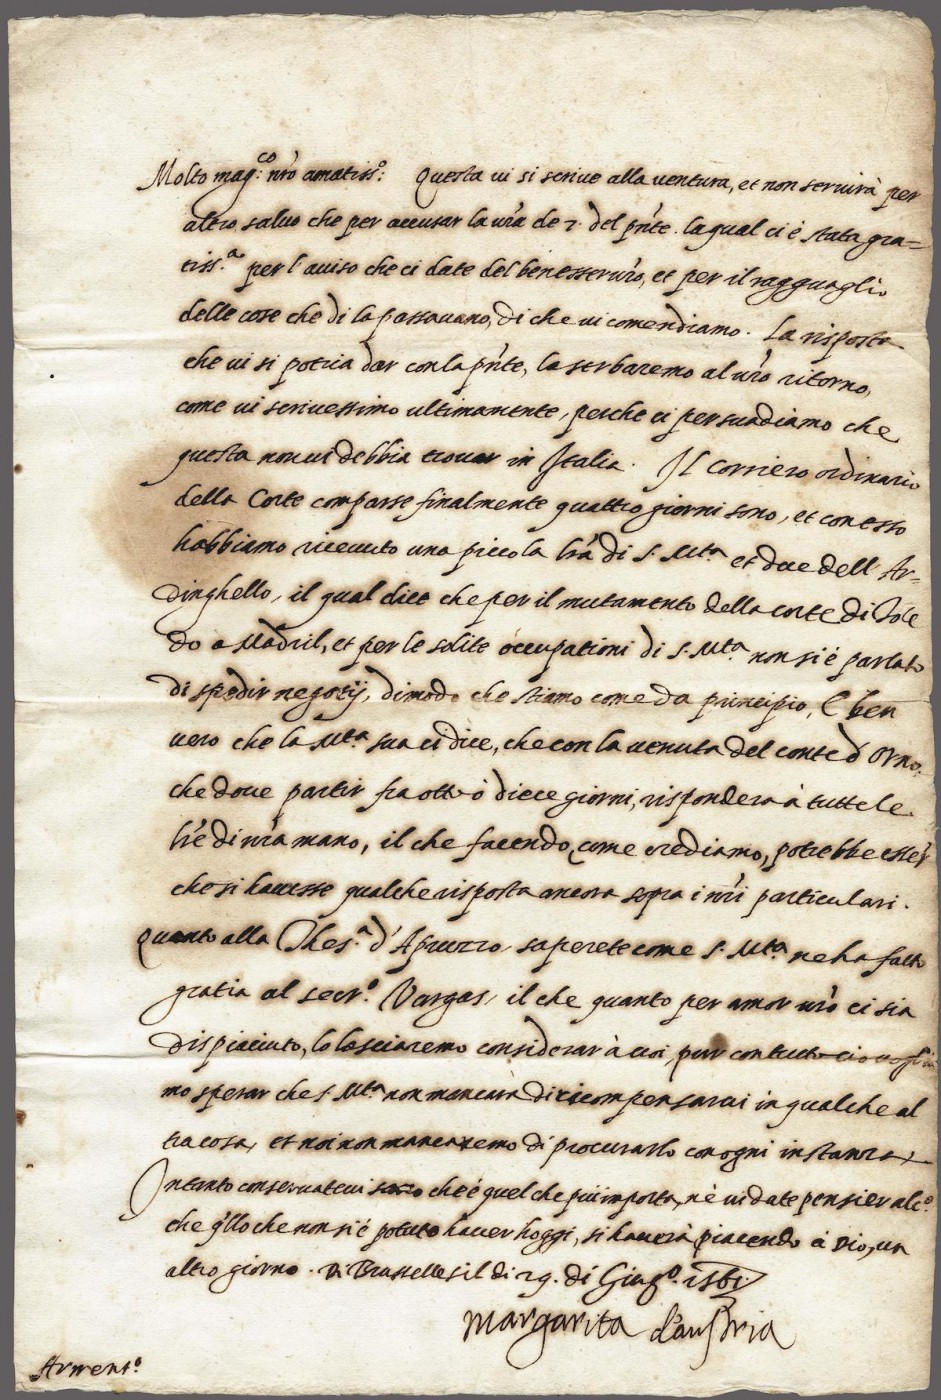 Molto mag:co nr̃o amatiss.o: Questa vi si scrive alla ventura, et non servirà per
altro, salvo che per accusar la vr̃a de 7. del pñte. la qual ci è stata gra=
tiss.a per l'aviso che ci date del ben esser vr̃o, et per il ragguaglio
delle cose che di la passavano, di che vi comendiamo. La risposta
che vi si potria dar con la pñte, la serbaremo al vr̃o ritorno,
come vi scrivessimo ultimamente, perche ci persuadiamo che
questa non vi debbia trovar in Italia. Il Corriero ordinario
della Corte comparse finalmente quattro giorni sono, et con esso
habbiamo ricevuto una piccola lr̃a di S. M.ta et due dell' Ar=
dinghello, il qual dice che per il mutamento della corte di Tole
do a Madril, et per le solite occupationi di S. M.ta non si è parlato
di spedir negotij, dimodo che stiamo come da principio, E ben
vero che la M.ta sua ci dice, che con la venuta del conte d'Orno,
che dove partir fra otto ò diece giorni, risponderà à tutte le
lr̃e di nr̃a mano, il che facendo, come crediamo, potrebbe esser
che si havesse qualche risposta ancora sopra i nr̃i particulari.
Quanto alla Thes.a d'Apruzzo saperete come S. M.ta ne ha fatto
gratia al secr.o Vargas, il che quanto per amor vr̃o ci sia
dispiaciuto, lo lasciaremo considerar à voi, pur con tutto cio voglia
mo sperar che S. M.ta non mancarà di ricompensarvi in qualche al
tra cosa, et noi non mancaremo di procurarlo con ogni instanza,
Intanto conservatevi sano che è quel che più importa, nè vi date pensier alc.o
che q̃llo che non si è potuto haver hoggi, si haverà piacendo à Dio, un
altro giorno. Di Brusselles il di 29. di Giug.o 1561.
Margarita d'austria
Arment.o